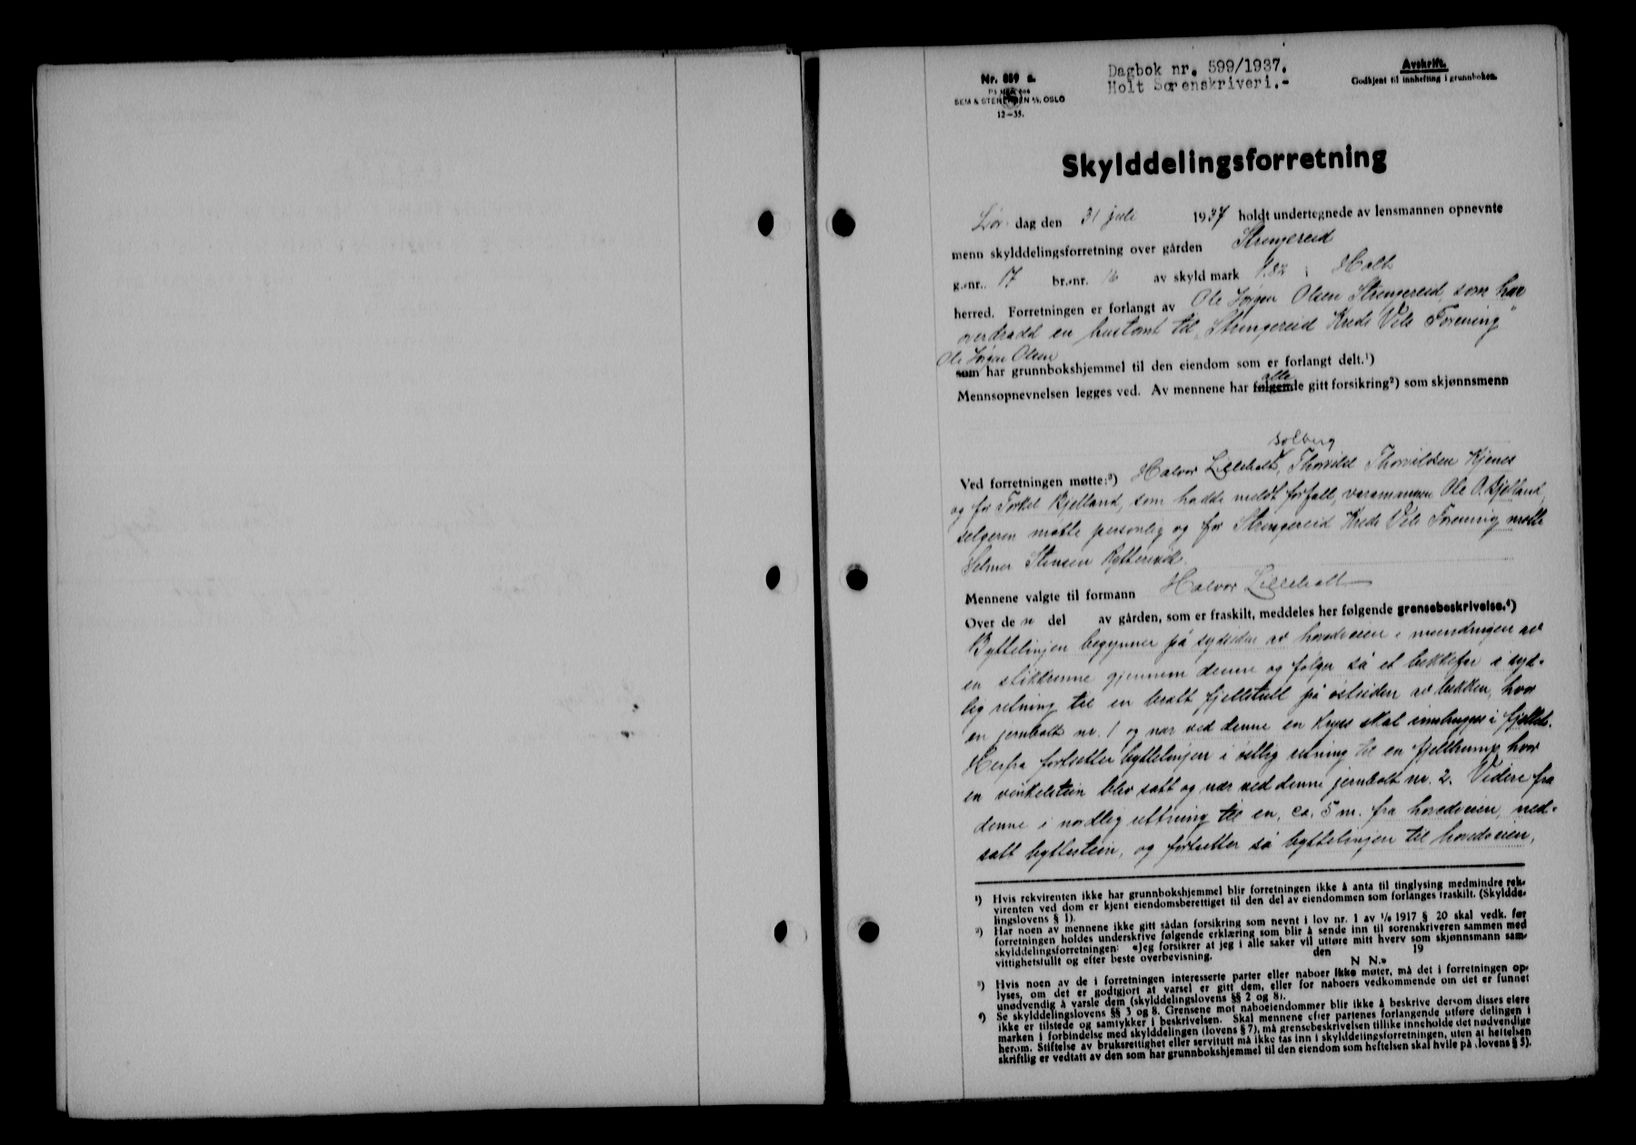 Nr. 859 a.
SEM & STENERSEN A/S, OSLO
12—35.
Dagbok nr. 599/1937.
Holt Sorenskriveri.-
Avskrift.
Godkjent til innhefting i grunnboken.
Skylddelingsforretning
Lør dag den 31 juli 1937 holdt undertegnede av lensmannen opnevnte
menn skylddelingsforretning over gården Strengereid
g.-nr. 17 br.-nr. 16 av skyld mark 1.82 i Holt
herred. Forretningen er forlangt av Ole Jørgen Olsen Strengereid, som har
overdradd en hustomt til "Strengereid Kreds Vels Forening"
Ole Jørgen Olsen
som har grunnbokshjemmel til den eiendom som er forlangt delt.¹)
alle
Mennsopnevnelsen legges ved. Av mennene har følgende gitt forsikring²) som skjønnsmenn
Solberg
Ved forretningen møtte:³) Halvor Lilleholt, Thorvild Thorvildsen Kjenes
og for Torkel Bjelland, som hadde meldt forfall, varamannen Ole O. Bjelland,
selgeren møtte personlig og for Strengereid Kreds Vels Forening møtte
Selmer Stensen
Mennene valgte til formann Halvor Lilleholt
Over de n del av gården, som er fraskilt, meddeles her følgende grensebeskrivelse.⁴)
Byttelinjen begynner på sydsiden av hovedveien i mundingen av
en stikkrenne gjennem denne og følger så et bekkefar i syd-
lig retning til en bratt fjellstull på østsiden av bekken, hvor
en jernbolt nr. 1 og nær ved denne en kryss skal innhugges i fjellet.
Herfra fortsetter byttelinjen i østlig retning til en fjellkump hvor
en vinkelstein blev satt og nær ved denne jernbolt nr. 2. Videre fra
denne i nordlig retning til en, ca. 5 m. fra hovedveien, ned-
satt byttestein, og fortsetter så byttelinjen til hovedveien,
¹) Hvis rekvirenten ikke har grunnbokshjemmel blir forretningen ikke å anta til tinglysing medmindre rek-
virenten ved dom er kjent eiendomsberettiget til den del av eiendommen som forlanges fraskilt. (Skyldde-
lingslovens § 1).
²) Har noen av mennene ikke gitt sådan forsikring som nevnt i lov nr. 1 av 1/6 1917 § 20 skal vedk. før
forretningen holdes underskrive følgende erklæring som blir å sende inn til sorenskriveren sammen med
skylddelingsforretningen: «Jeg forsikrer at jeg i alle saker vil utføre mitt hverv som skjønnsmann sam-
vittighetsfullt og efter beste overbevisning. den 19
N N.»
³) Hvis noen av de i forretningen interesserte parter eller naboer ikke møter, må det i forretningen op-
lyses, om det er godtgjort at varsel er gitt dem, eller for naboers vedkommende om det er funnet
unødvendig å varsle dem (skylddelingslovens §§ 2 og 8).
⁴) Se skylddelingslovens §§ 3 og 8. Grensene mot naboeiendommer blir ikke å beskrive dersom disses eiere
ikke er tilstede og samtykker i beskrivelsen. Skal mennene efter partenes forlangende utføre delingen i
marken i forbindelse med skylddelingen (lovens § 7), må grensebeskrivelsen tillike inneholde det nødvendige
herom. Stiftelse av bruksrettighet eller servitutt må ikke tas inn i skylddelingsforretningen, uten at heftelsen
skriftlig er vedtatt av den som har grunnbokshjemmel til den eiendom som heftelsen skal hvile på (lovens § 5).